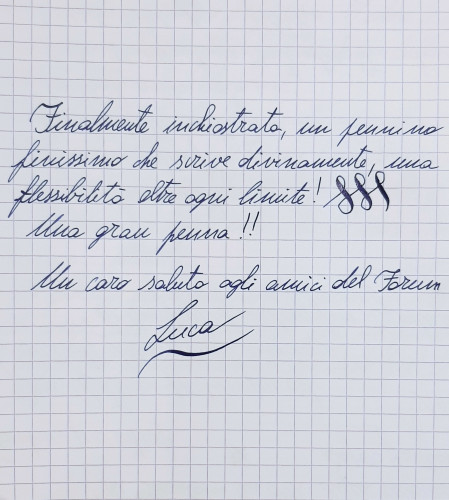 Finalmente inchiostrata, un pennino
finissimo che scrive divinamente, una
flessibilità oltre ogni limite!
Una gran penna!!
Un caro saluto agli amici del Forum
Luca